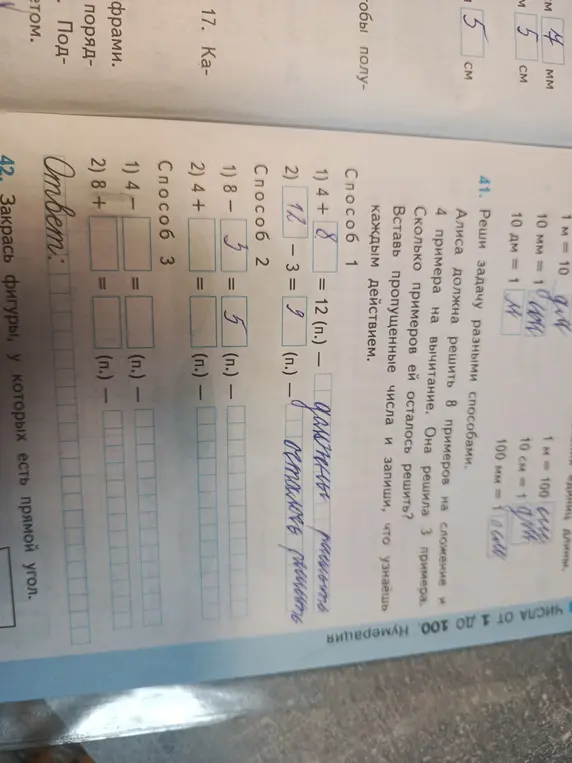 7 мм
5 см
5 см
тобы полу-
17. Ка-
фрами.
поряд-
Под-
етом.
единиц длины.
1 м = 10 дм
1 м = 100 см
10 мм = 1 см
10 см = 1 дм
10 дм = 1 м
100 мм = 10 см
41. Реши задачу разными способами.
Алиса должна решить 8 примеров на сложение и
4 примера на вычитание. Она решила 3 примера.
Сколько примеров ей осталось решить?
Вставь пропущенные числа и запиши, что узнаёшь
каждым действием.
Способ 1
1) 4 + 8 = 12 (п.) — должны решить
2) 12 − 3 = 9 (п.) — осталось решить
Способ 2
1) 8 − 3 = 5 (п.) —
2) 4 + = (п.) —
Способ 3
1) 4 − = (п.) —
2) 8 + = (п.) —
Ответ:
42. Закрась фигуры, у которых есть прямой угол.
ЧИСЛА ОТ 1 ДО 100. Нумерация